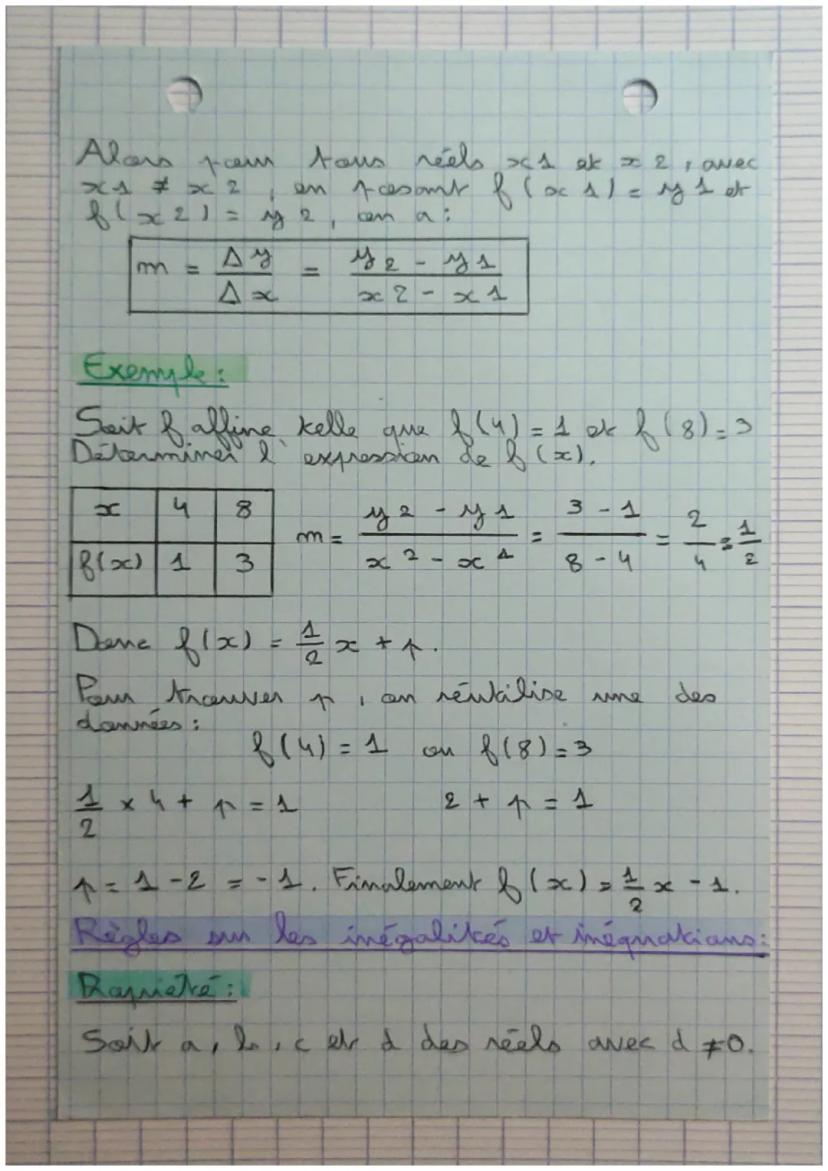 Alors pour tous réels x1 et x2, avec
x1 ≠ x2, en posant f(x1) = y1 et
f(x2) = y2, on a :
m = Δy / Δx = (y2 - y1) / (x2 - x1)
Exemple :
Soit f affine telle que f(4) = 1 et f(8) = 3
Déterminer l'expression de f(x).
x 4 8
f(x) 1 3
m = (y2 - y1) / (x2 - x1) = (3 - 1) / (8 - 4) = 2/4 = 1/2
Donc f(x) = 1/2 x + p.
Pour trouver p, on réutilise une des
données :
f(4) = 1 ou f(8) = 3
1/2 × 4 + p = 1 2 + p = 1
p = 1 - 2 = -1. Finalement f(x) = 1/2 x - 1.
Règles sur les inégalités et inéquations :
Propriété :
Soit a, b, c et d des réels avec d ≠ 0.